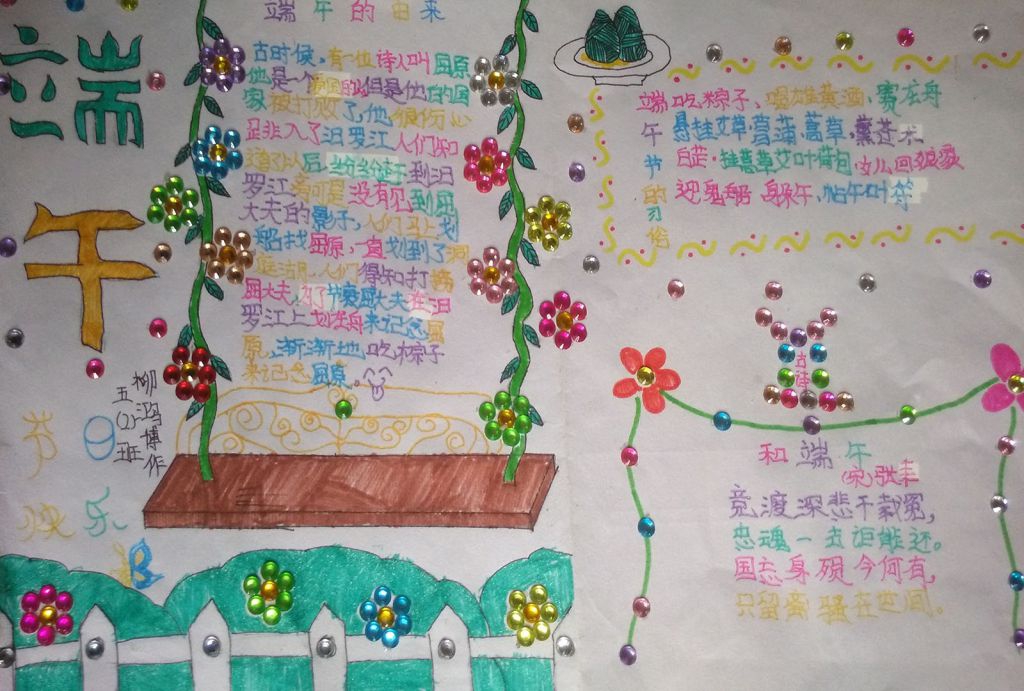 端午
节日快乐
五(2)班
柳鸿博作
端午的由来
古时候,有一位诗人叫屈原
他是一个爱国的但是他的国
家被打败了,他很伤心
罗江人们知
道了以后纷纷
到汨
罗江
可是没有见到屈
大夫的影子,人们马上划
船找屈原,一直划到了洞
庭湖,人们得知打捞
屈大夫,为了
屈大夫在汨
罗江上划龙舟来记念屈
原,渐渐地吃粽子
来记念屈原。
端午节的习俗
吃粽子,喝雄黄酒,赛龙舟
悬挂艾草菖蒲蒿草,薰苍术
白芷,挂
草艾叶荷包
回娘家
迎鬼船
躲午,帖午叶符
古诗
和端午
(宋)张耒
竞渡深悲千载冤,
忠魂一去讵能还。
国忘身殒今何有,
只留离骚在世间。